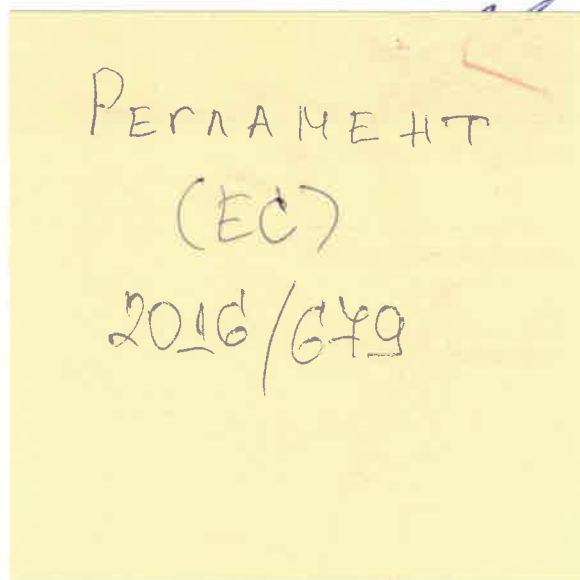 РЕГЛАМЕНТ
(ЕС)
2016/679